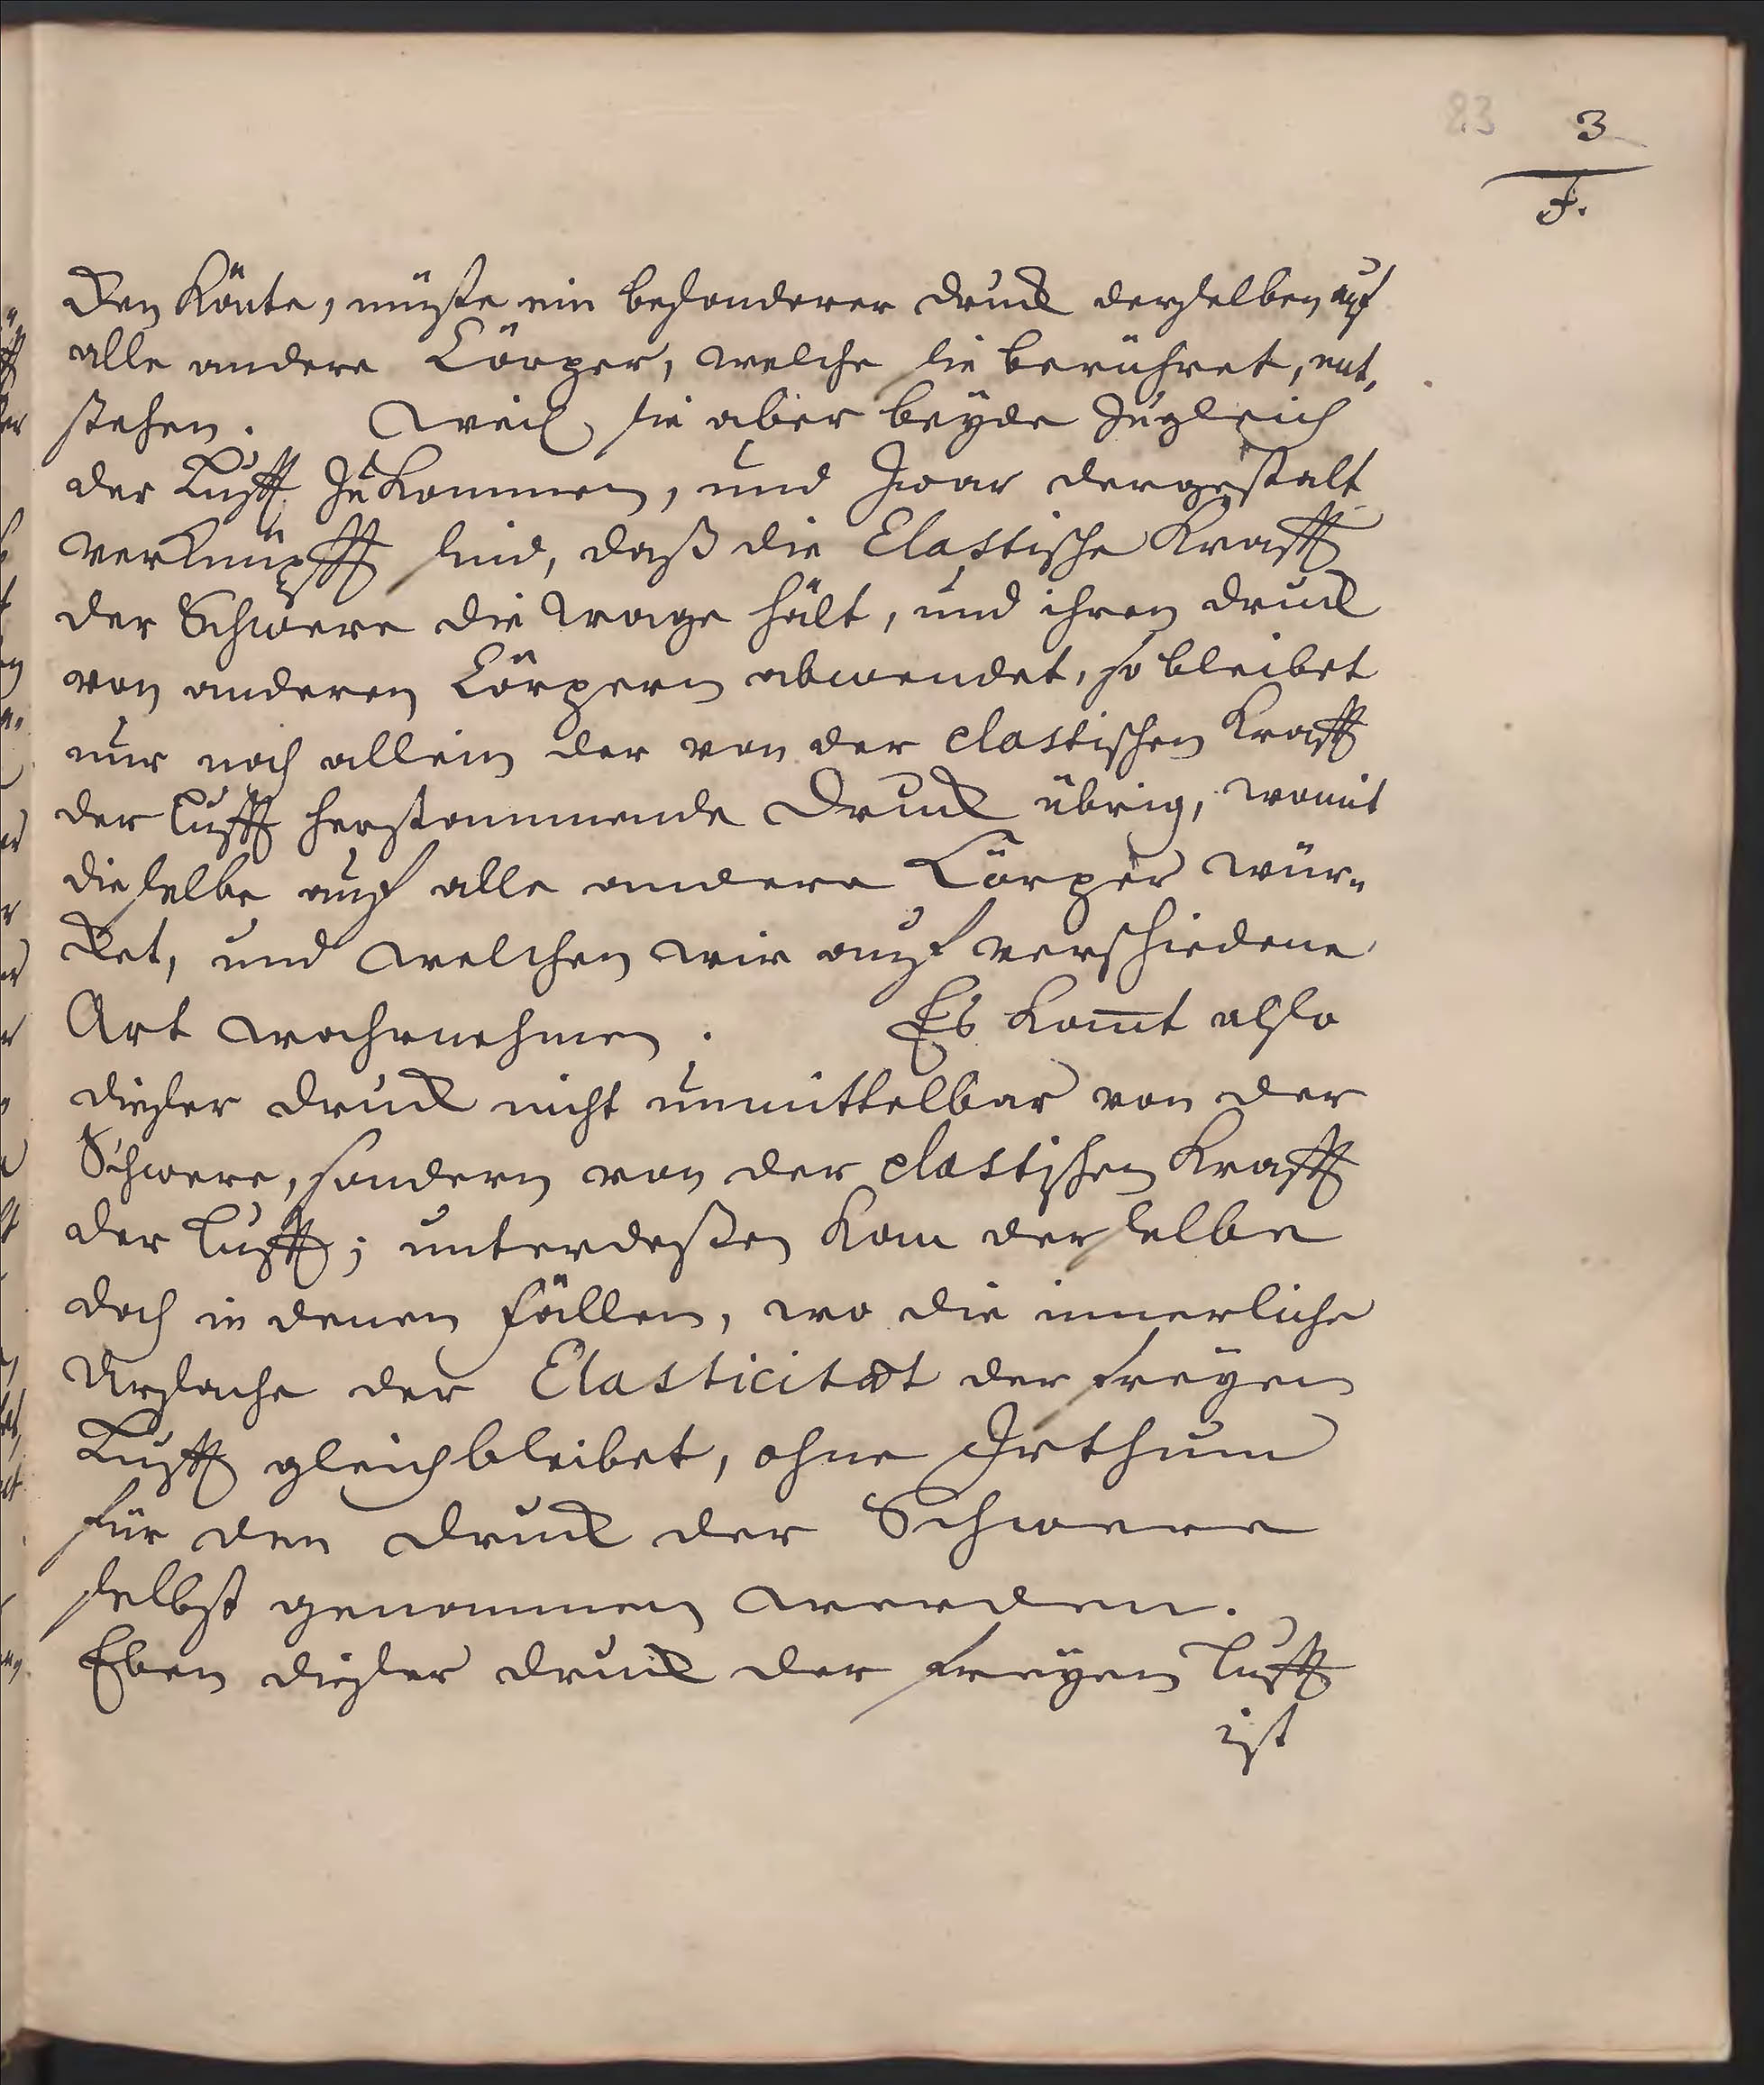 83 3
F.
den könte, müßte ein besonderer druck derselben auf
alle andere Cörper, welche sie berühret, ent,
stehen. Weil sie aber beyde zugleich
der Lufft zukommen, und zwar dergestalt
verknüpfft sind, daß die Elastische Krafft
der Schwere die Wage hält, und ihren druck
von anderen Cörpern abwendet, so bleibet
nur noch allein der von der elastischen Krafft
der Lufft herstammende Druck übrig, womit
dieselbe auf alle andere Cörper wür-
ket, und welchen wir auf verschiedene
Art wahrnehmen. Es kom̅t also
dieser druck nicht unmittelbar von der
Schwere, sondern von der elastischen Krafft
der Lufft; unterdeßen kan derselbe
doch in denen Fällen, wo die innerliche
Ursache der Elasticität der freyen
Lufft gleich bleibet, ohne Irthum
für den druck der Schwere
selbst genommen werden.
Eben dieser druck der freyen Lufft
ist